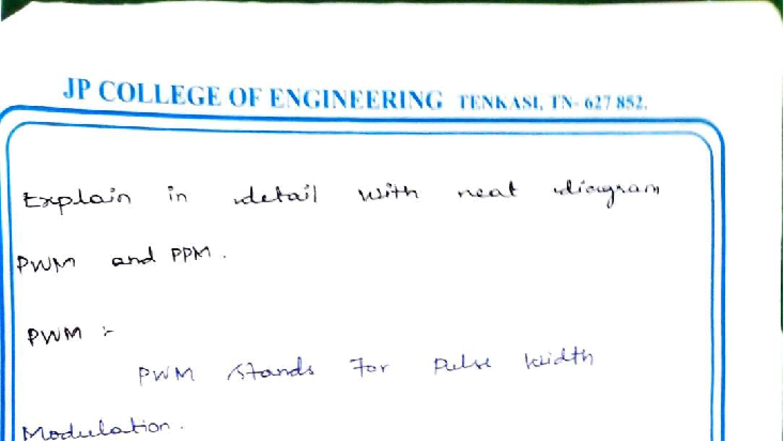 JP COLLEGE OF ENGINEERING TENKASI, TN- 627 852.
Explain in detail with neat diagram
PWM and PPM.
PWM :-
PWM stands for Pulse Width
Modulation.